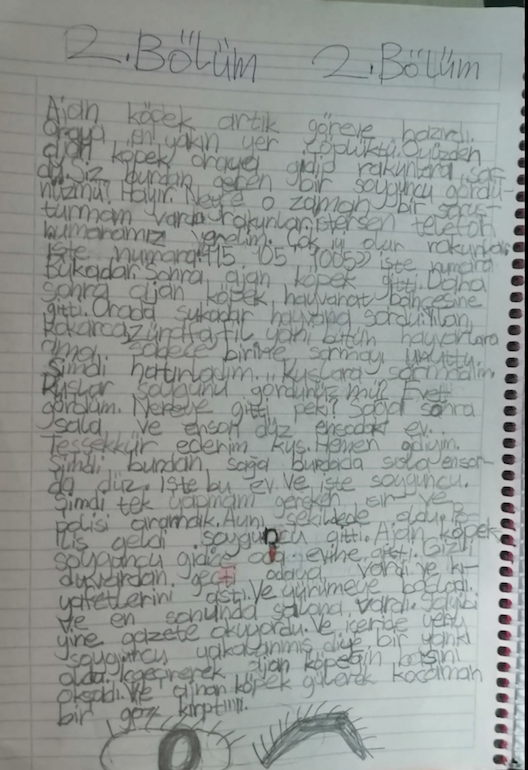 2.Bölüm 2.Bölüm
Ajan köpek artık göreve hazırdı.
oraya en yakın yer çöplüktü.Oyüzden
ajan köpek oraya gidip rakunlara sor
du.Siz burdan geçen bir soyguncu gördü-
nüzmü? Hayır. Neyse o zaman bir soruş-
turmam vardı rakunlar.istersen telefon
numaramız verelim. Çok iyi olur rakunlar
işte numara 415 "05" "005" işte numara
bukadar.Sonra ajan köpek gitti.Daha
sonra ajan köpek hayvanat bahçesine
gitti.Orada şukadar hayvana sordu:Yılan,
zürafa,fil yani bütün hayvanlara
ama sadece birine sormayı unuttu.
Şimdi hatırladım. Kuşlara sormalıyım.
Kuşlar soyguncu gördünüz mü? Evet
gördüm. Nereye gitti peki? Sağa sonra
sola ve ensar düz ensodaki ev..
Teşşekkür ederim kuş.Hemen gidiyim.
Şimdi burdan sağa burdada sola ensor-
da düz. İşte bu ev.Ve işte soyguncu.
Şimdi tek yapmam gereken ve
polisi aramdık.Aynı şekildede oldu.Po-
lis geldi soyguncu gitti.Ajan köpek
soyguncu evine gitti.Gizli
duvardan geçti odaya vardı ve kı-
yafetlerini astı.Ve yürümeye başladı.
Ve en sonunda salona vardı. Sahibi
yine gazete okuyordu.Ve içeriye
soyguncu yakalanmış diye bir yankı
oldu. ajan köpeğin başını
okşadı.Ve ajnan köpek gülerek kocaman
bir göz kırptıııı.